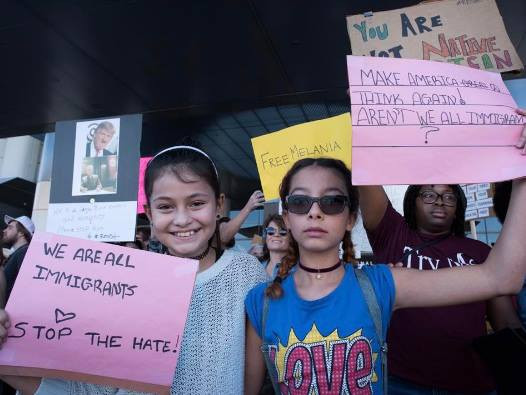 YOU ARE
NOT NATIVE
MAKE AMERICA
THINK AGAIN!
AREN'T WE ALL IMMIGRANTS
?
FREE MELANIA
WE ARE ALL
IMMIGRANTS
STOP THE HATE!
LOVE
Try Me